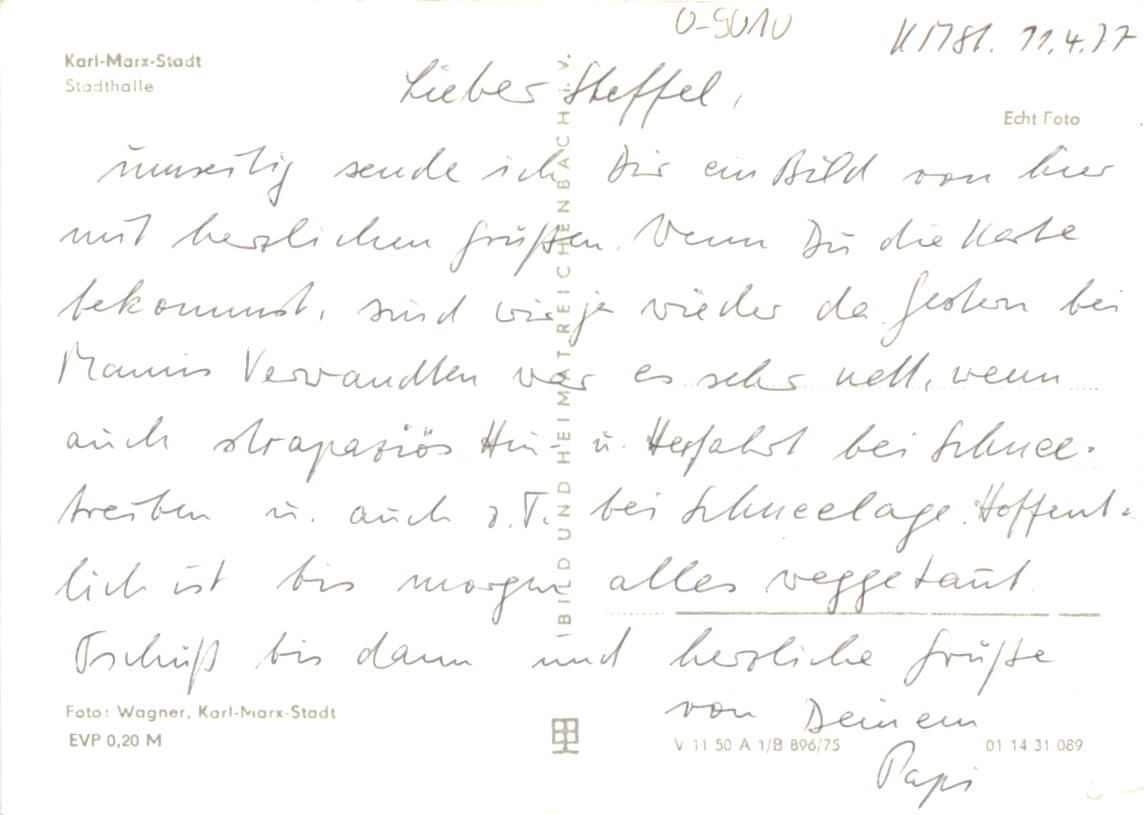 O-9010
KMSt. 11.4.77
Karl-Marx-Stadt
Stadthalle
Echt Foto
Lieber Steffel,
umseitig sende ich Dir ein Bild von hier
mit herzlichen Grüßen. Wenn Du die Karte
bekommst, sind wir ja wieder da. Gestern bei
Mamis Verwandten war es sehr nett, wenn
auch strapaziös Hin- u. Herfahrt bei Schnee-
treiben u. auch z.T. bei Schneelage. Hoffent-
lich ist bis morgen alles weggetaut.
Tschüß bis dann und herzliche Grüße
von Deinem
Papi
BILD UND HEIMAT REICHENBACH i. V.
Foto: Wagner, Karl-Marx-Stadt
EVP 0,20 M
V 11 50 A 1/B 896/75
01 14 31 089